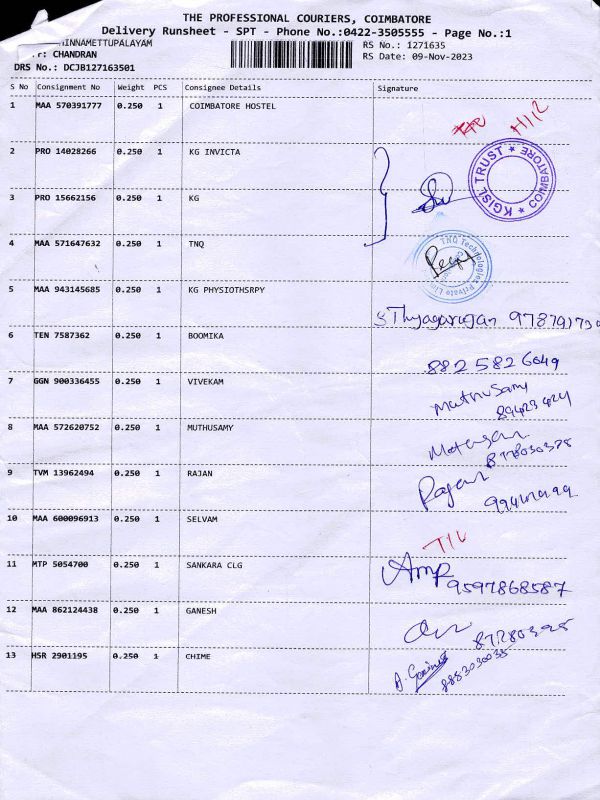 THE PROFESSIONAL COURIERS, COIMBATORE
Delivery Runsheet - SPT - Phone No.:0422-3505555 - Page No.:1
HINNAMETTUPALAYAM
RS No.: 1271635
: CHANDRAN
RS Date: 09-Nov-2023
DRS No.: DCJB127163501
S No Consignment No Weight PCS Consignee Details Signature
1 MAA 570391777 0.250 1 COIMBATORE HOSTEL
2 PRO 14028266 0.250 1 KG INVICTA
KGISL TRUST * COIMBATORE *
3 PRO 15662156 0.250 1 KG
4 MAA 571647632 0.250 1 TNQ
TNQ Technologies Private
5 MAA 943145685 0.250 1 KG PHYSIOTHSRPY
S Thyagarajan
6 TEN 7587362 0.250 1 BOOMIKA
882 582 6049
7 GGN 900336455 0.250 1 VIVEKAM
Muthusamy
8 MAA 572620752 0.250 1 MUTHUSAMY
9 TVM 13962494 0.250 1 RAJAN
Rajan
10 MAA 600096913 0.250 1 SELVAM
11 MTP 5054700 0.250 1 SANKARA CLG
9597868587
12 MAA 862124438 0.250 1 GANESH
13 HSR 2901195 0.250 1 CHIME